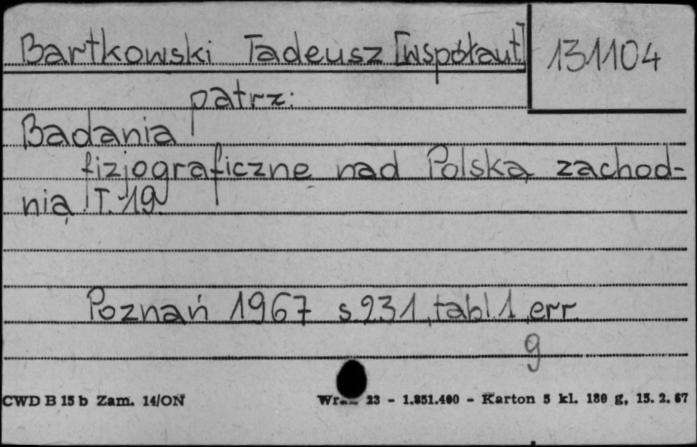 Bartkowski Tadeusz [współaut] 131104
patrz:
Badania
fizjograficzne nad Polską zachod-
nią. T. 19.
Poznań 1967 s 231, tabl. 1, err
g
CWD B 15 b Zam. 14/ON 23 - 1.851.400 - Karton 5 kl. 180 g, 15. 2. 67